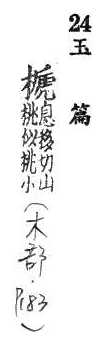 24 玉篇
榹息移切山桃似桃小(木部·P183)